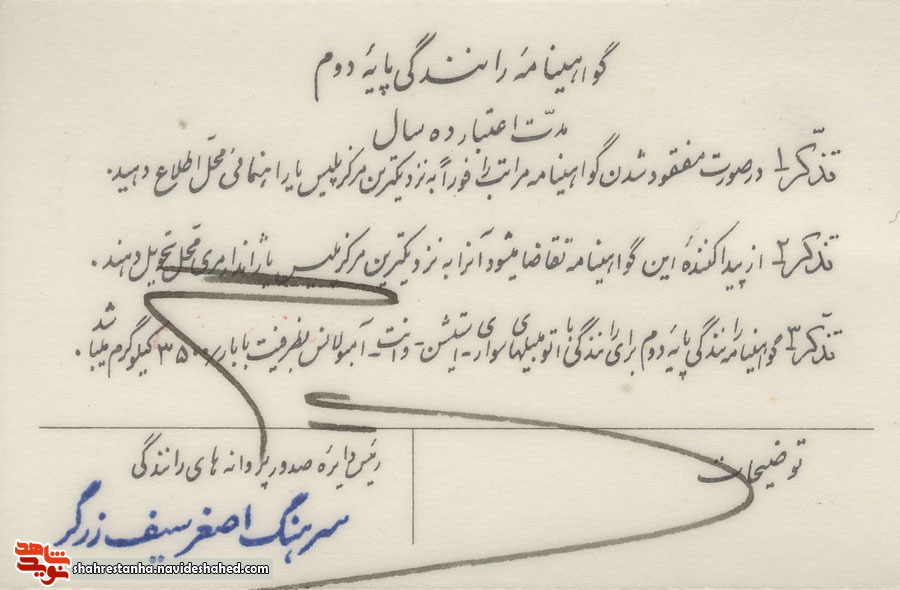 گواهینامهٔ رانندگی پایهٔ دوم
مدّت اعتبار ده سال
تذکّر ۱ـ درصورت مفقود شدن گواهینامه مراتب را فوراً به نزدیکترین مرکز پلیس یا راهنمائی محلّ اطلاع دهید.
تذکّر ۲ـ از پیدا کنندهٔ این گواهینامه تقاضا میشود آنرا به نزدیکترین مرکز پلیس یا ژاندارمری محلّ تحویل دهند.
تذکّر ۳ـ گواهینامه رانندگی پایهٔ دوم برای رانندگی با اتومبیلهای سواری ـ استیشن ـ وانت ـ آمبولانس بظرفیت با بار ۳۵۰۰ کیلوگرم میباشد.
توضیحات
رئیس دایرهٔ صدور پروانه های رانندگی
سرهنگ اصغر سیف زرگر
نوید شاهد
shahrestanha.navideshahed.com